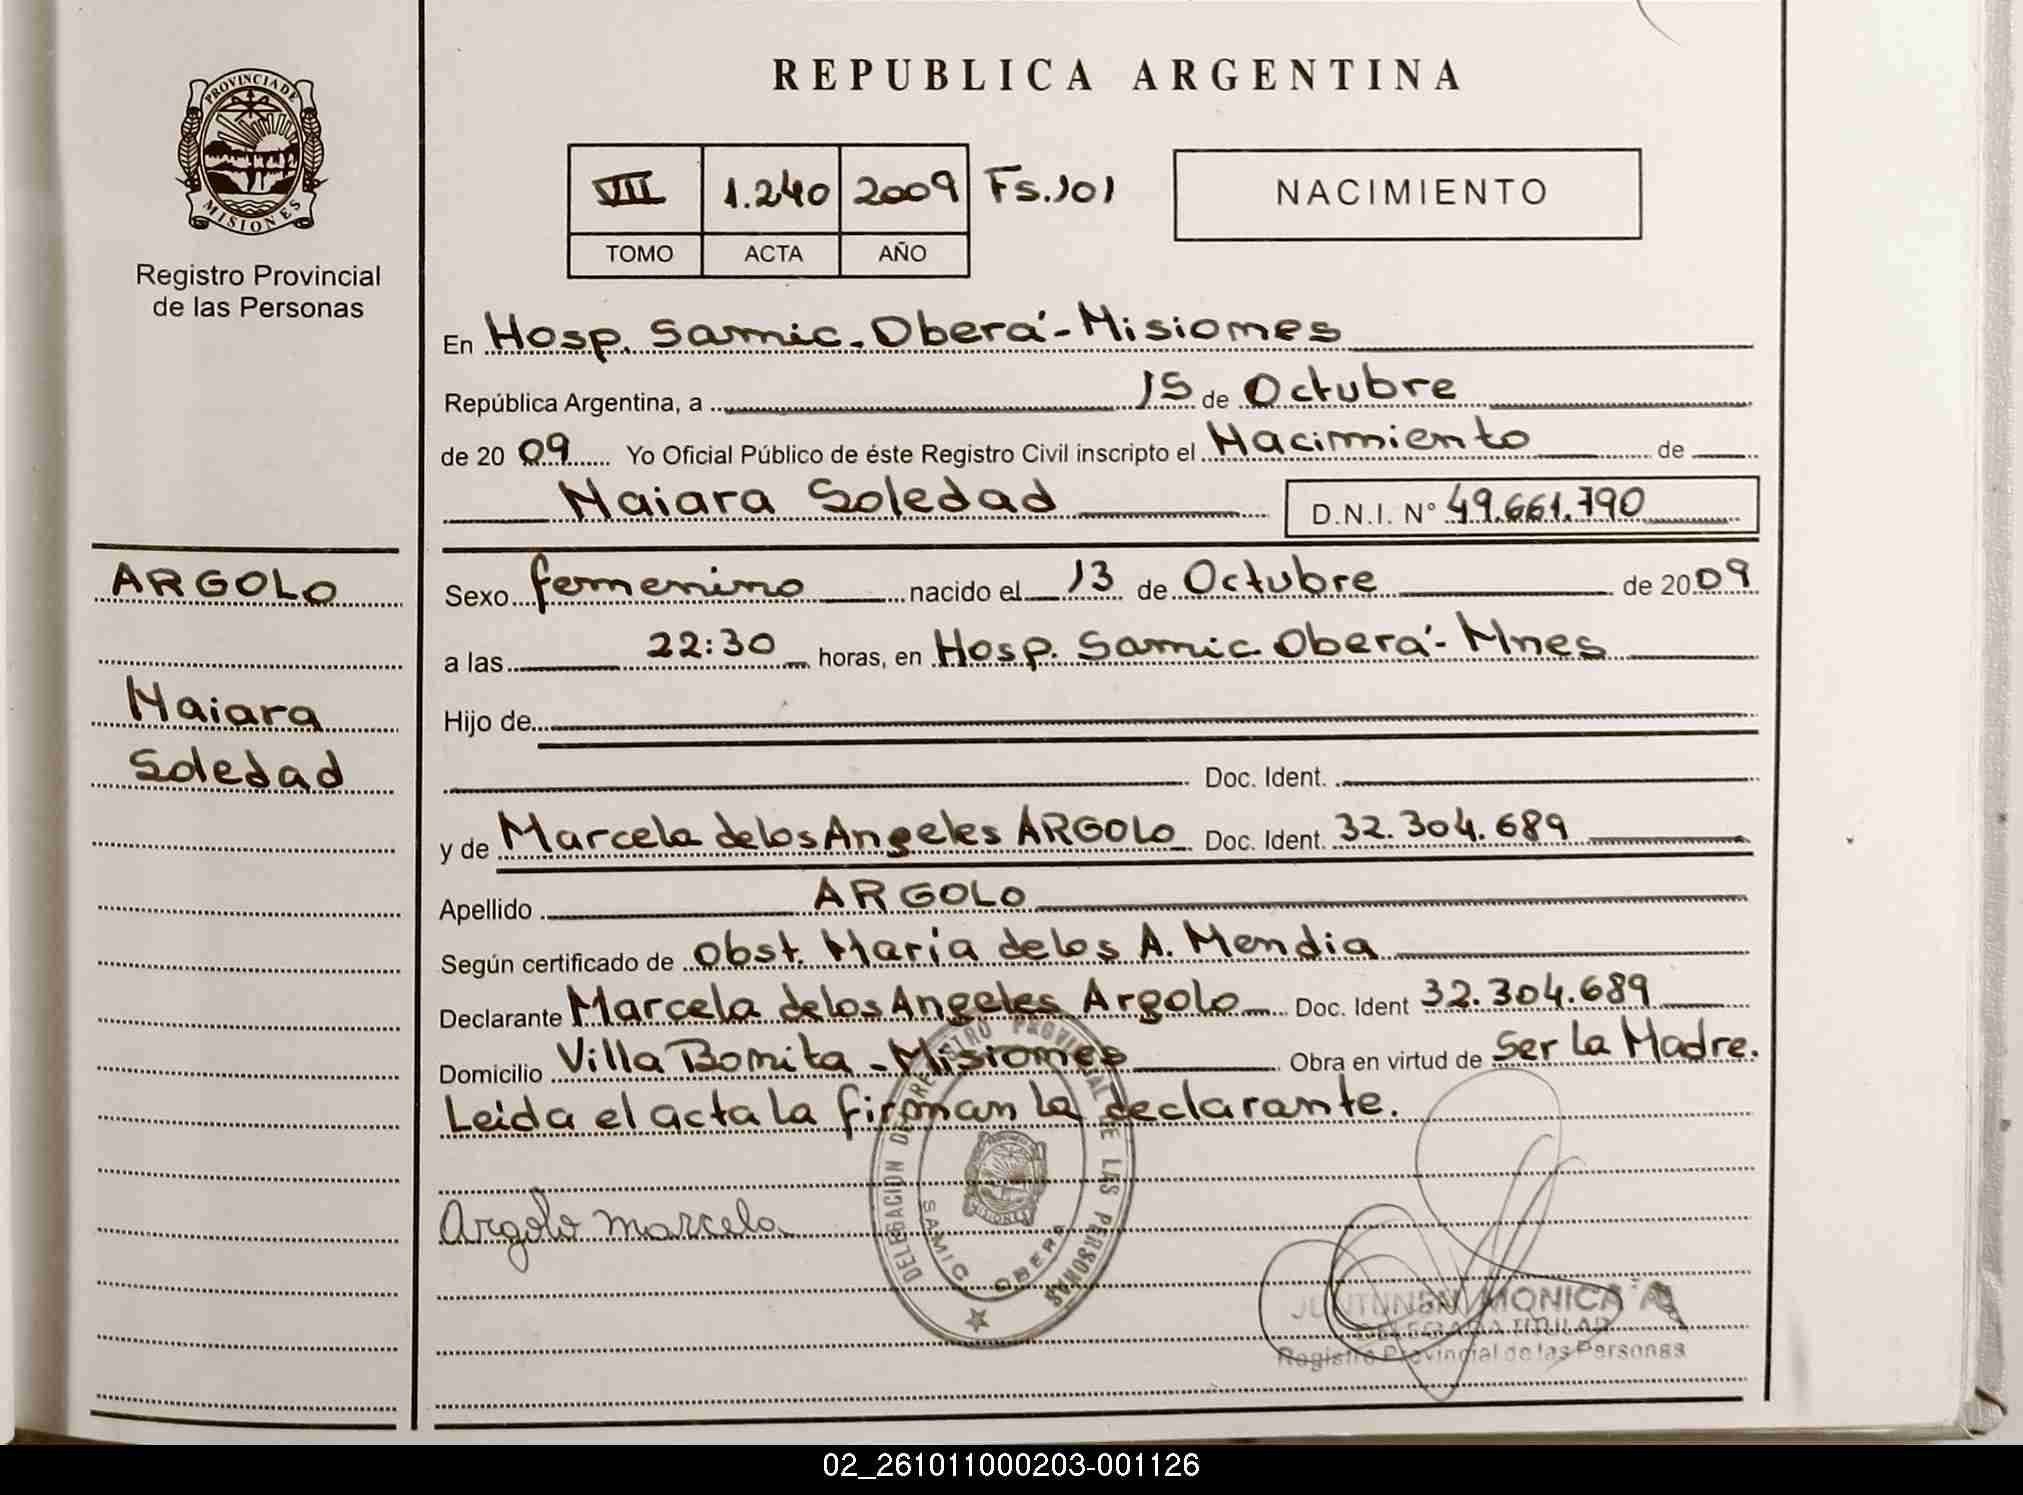 PROVINCIA DE
MISIONES
Registro Provincial
de las Personas
REPUBLICA ARGENTINA
VIII 1.240 2009 Fs.101
TOMO ACTA AÑO
NACIMIENTO
En Hosp. Samic. Oberá - Misiones
República Argentina, a 15 de Octubre
de 2009 Yo Oficial Público de éste Registro Civil inscripto el Nacimiento de
Naiara Soledad D.N.I. N° 49.661.790
ARGOLO
Naiara
Soledad
Sexo femenino nacido el 13 de Octubre de 2009
a las 22:30 horas, en Hosp. Samic Oberá - Mnes
Hijo de
Doc. Ident.
y de Marcela de los Angeles ARGOLO Doc. Ident. 32.304.689
Apellido ARGOLO
Según certificado de obst. Maria de los A. Mendia
Declarante Marcela de los Angeles Argolo Doc. Ident 32.304.689
Domicilio Villa Bonita - Misiones Obra en virtud de Ser la Madre.
Leida el acta la firman la declarante.
Argolo marcela
DELEGACION DEL REGISTRO PROVINCIAL DE LAS PERSONAS
SAMIC OBERA
MONICA
DELEGADA TITULAR
Registro Provincial de las Personas
02_261011000203-001126